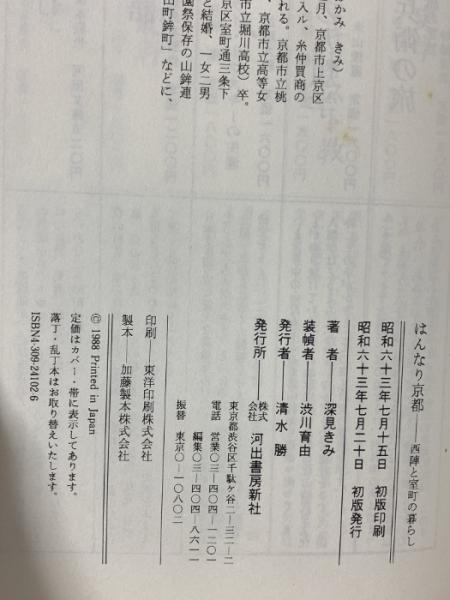 かみ きみ)
月、京都市上京区
入ル、糸仲買商の
れる。京都市立桃
、京都市立高等女
市立堀川高校)卒。
京区室町通三条下
と結婚、一女二男
園祭保存の山鉾連
山町鉾町」などに、
はんなり京都 西陣と室町の暮らし
昭和六十三年七月十五日 初版印刷
昭和六十三年七月二十日 初版発行
著 者――深見きみ
装幀者――渋川育由
発行者――清水 勝
発行所――株式会社 河出書房新社
東京都渋谷区千駄ケ谷二―三二―二
電話 営業〇三―四〇四―一二〇一
編集〇三―四〇四―八六一一
振替 東京〇―一〇八〇二
印刷――東洋印刷株式会社
製本――加藤製本株式会社
© 1988 Printed in Japan
定価はカバー・帯に表示してあります。
落丁・乱丁本はお取り替えいたします。
ISBN4-309-24102-6